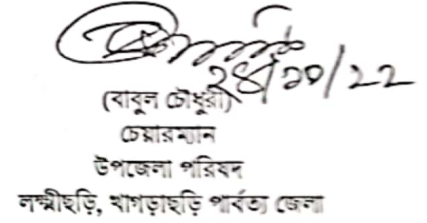 ২৪/১০/২২
(বাবুল চৌধুরী)
চেয়ারম্যান
উপজেলা পরিষদ
লক্ষ্মীছড়ি, খাগড়াছড়ি পার্বত্য জেলা